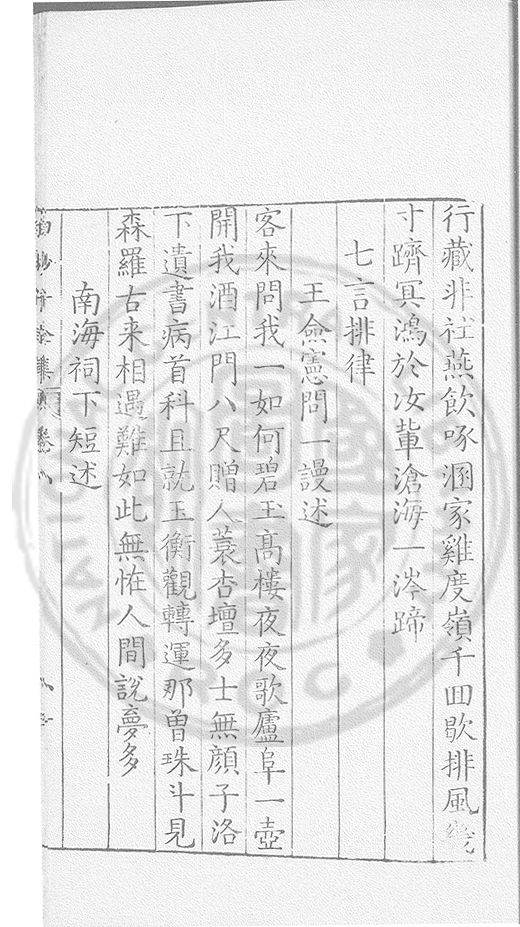 行藏非社燕飲啄溷家雞度嶺千回歇排風幾
寸躋冥鴻於汝輩滄海一涔蹄
七言排律
王僉憲問一謾述
客來問我一如何碧玉高樓夜夜歌廬阜一壺
開我酒江門八尺贈人蓑杏壇多士無顔子洛
下遺書病首科且就玉衡觀轉運那曾珠斗見
森羅古来相遇難如此無恠人間說夢多
南海祠下短述